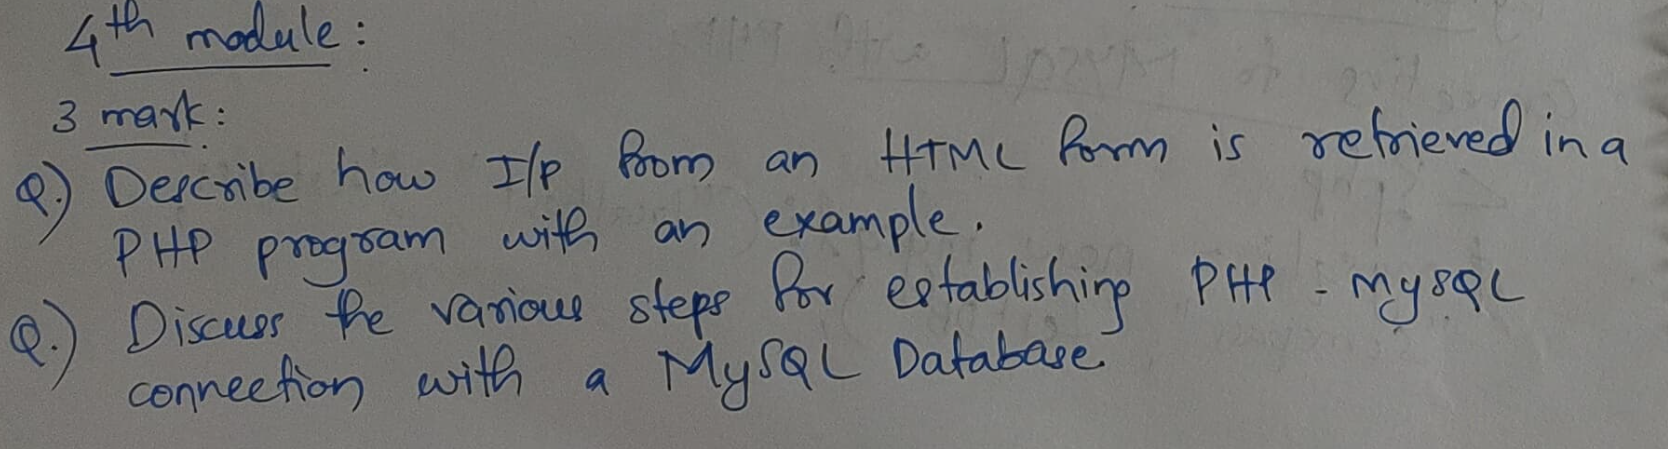 4th module:
3 mark:
Q.) Describe how I/p from an HTML form is retrieved in a
PHP program with an example.
Q.) Discuss the various steps for establishing PHP - MySQL
connection with a MySQL Database.